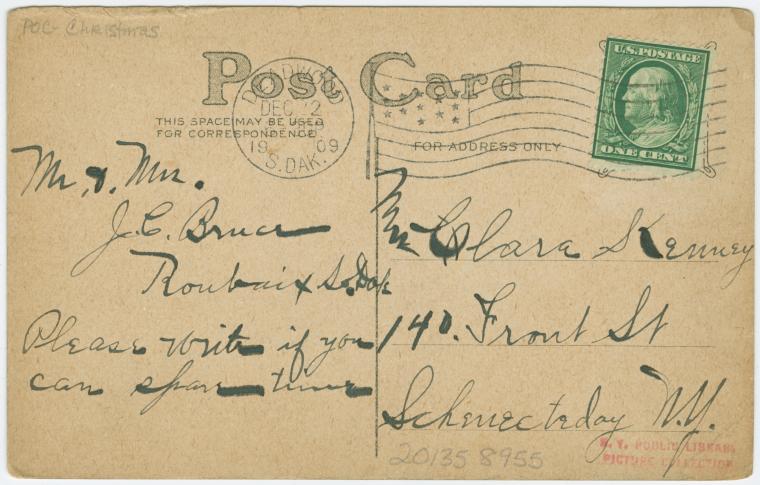 POC- Christmas
Post Card
THIS SPACE MAY BE USED
FOR CORRESPONDENCE
FOR ADDRESS ONLY
DEADWOOD
DEC 12
1909
S. DAK.
U.S. POSTAGE
ONE CENT
Mr. & Mrs.
J. C. Bruce
Roubaix So. Dak
Please write if you
can spare time
Clara Kenney
140. Front St
Schenecteday N.Y.
20135 8955
N. Y. PUBLIC LIBRARY
PICTURE COLLECTION